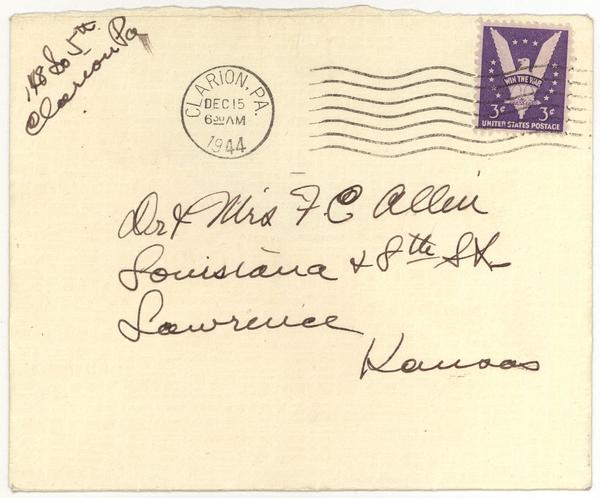 148 So 5th
Clarion Pa
CLARION, PA.
DEC 15
6 30 AM
1944
WIN THE WAR
3¢ 3¢
UNITED STATES POSTAGE
Dr & Mrs F C Allen
Louisiana & 8th St.
Lawrence
Kansas